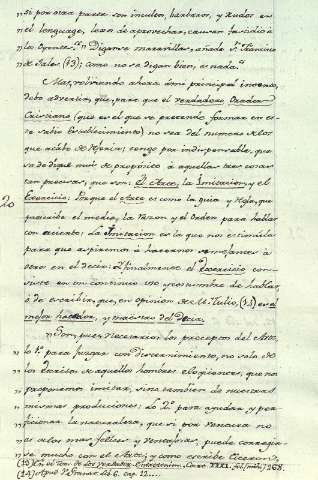 " si por otra parte son incultos, barbaros, y rudos en
" el lenguage, lexos de aprovechar, causan fastidio á
" los Oyentes. " Diganse maravillas, añade Sn. Francisco
de Sales (13); como no se digan bien, es nada."
Mas, volviendo ahora á mi principal intento,
debo advertir, que para que el verdadero Orador
Cristiano (que es el que se pretende formar en es-
te sabio Establecimiento) no sea del numero de los
que acabo de referir, tengo por indispensable, que
se dedique mui de proposito á aquellas tres cosas
tan precisas, que son: El Arte, la Imitacion, y el
Exercicio. Porque el Arte es como la guia y regla, que
prescribe el medio, la razon y el orden para hablar
con acierto: La Imitacion es la que nos estimula
para que aspiremos á hacernos semejantes á
otro en el decir: i finalmente el Exercicio con-
siste en un continuo uso y costumbre de hablar,
ó de escribir, que, en opinion de M. Tulio, (14) es el
mejor hacedor, y maestro del decir.
" Son, pues, necesarios los preceptos del Arte,
" lo 1º para juzgar con discernimiento, no solo de
" los Escritos de aquellos hombres eloqüentes, que nos
" proponemos imitar, sino tambien de nuestras
" mismas producciones: lo 2º para ayudar y per-
" ficionar la naturaleza, que si por ventura no
" es de las mas felices y ventajosas, puede corregir-
" se mucho con el Arte; y como escribe Ciceron,
(13) En el tom. de Los verdaderos Entretenim. 268.
(14) lib. 6. cap. 12
20